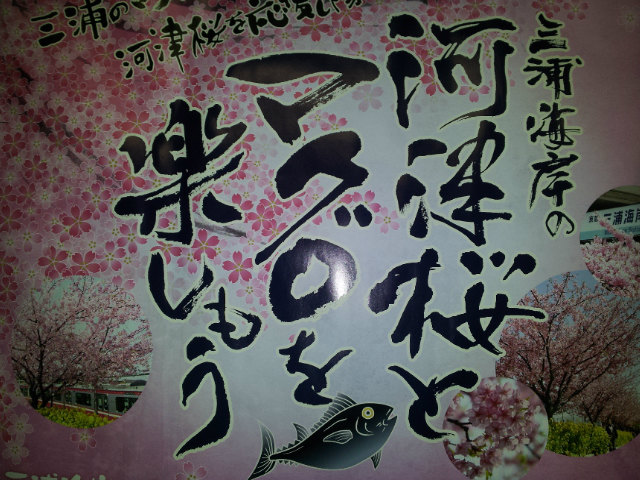 三浦海岸の
河津桜と
マグロを
楽しもう
三浦の
河津桜を応
三浦海